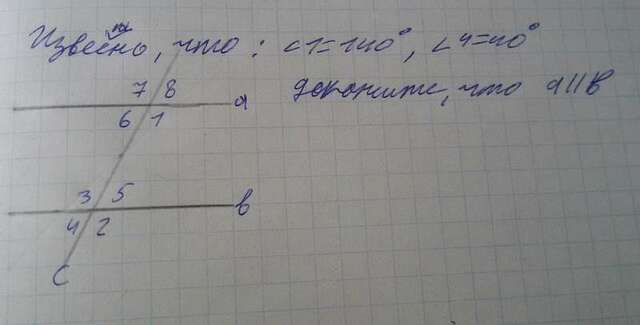 Известно, что: ∠1=140°, ∠4=40°
докажите, что a||b
7 8
a
6 1
3 5
b
4 2
c